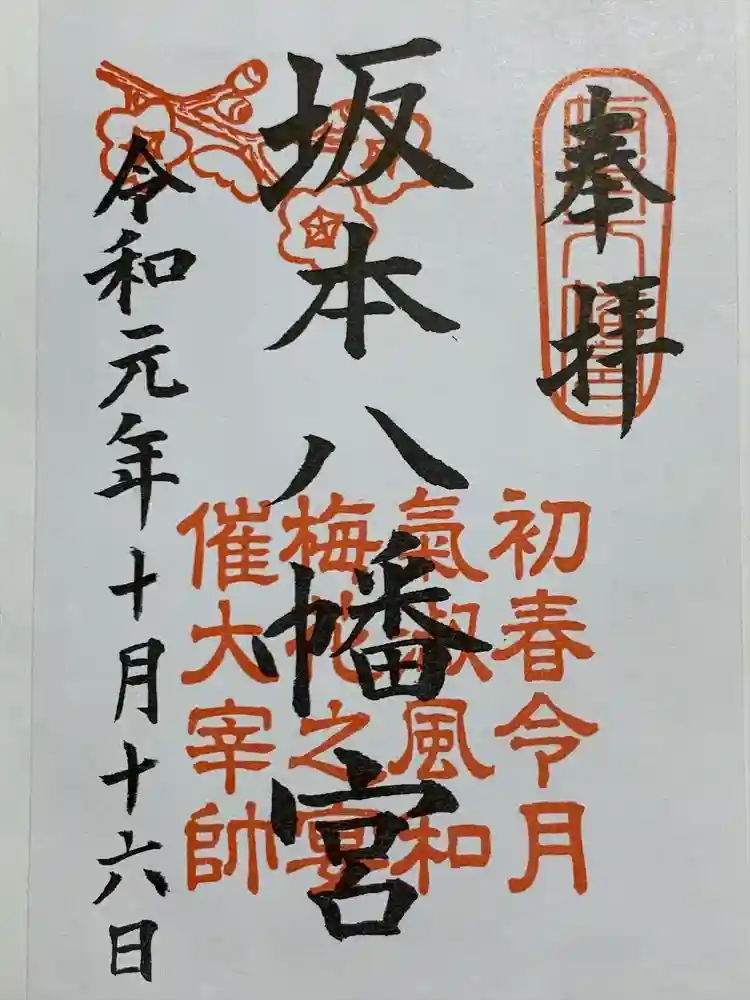 奉拝
坂本八幡宮
令和元年十月十六日
初春令月
氣淑風和
梅花之宴
催大宰帥